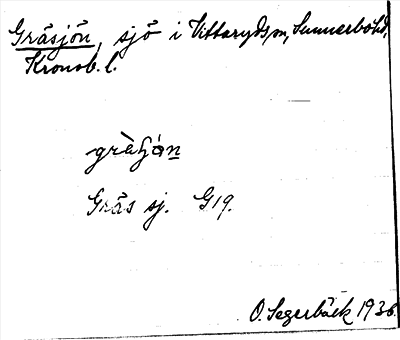 Gråsjön, sjö i Vittaryds sn, Sunnerbo hd,
Kronob. l.
Grås sj. G19.
O. Segerbäck 1936.